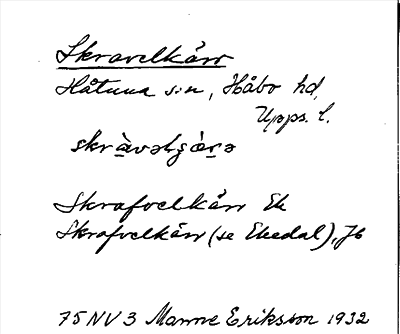 Skravelkärr
Håtuna sn, Håbo hd,
Upps. l.
Skrafvelkärr Ek
Skrafvelkärr (se Ekedal), Jb
75 NV 3 Manne Eriksson 1932